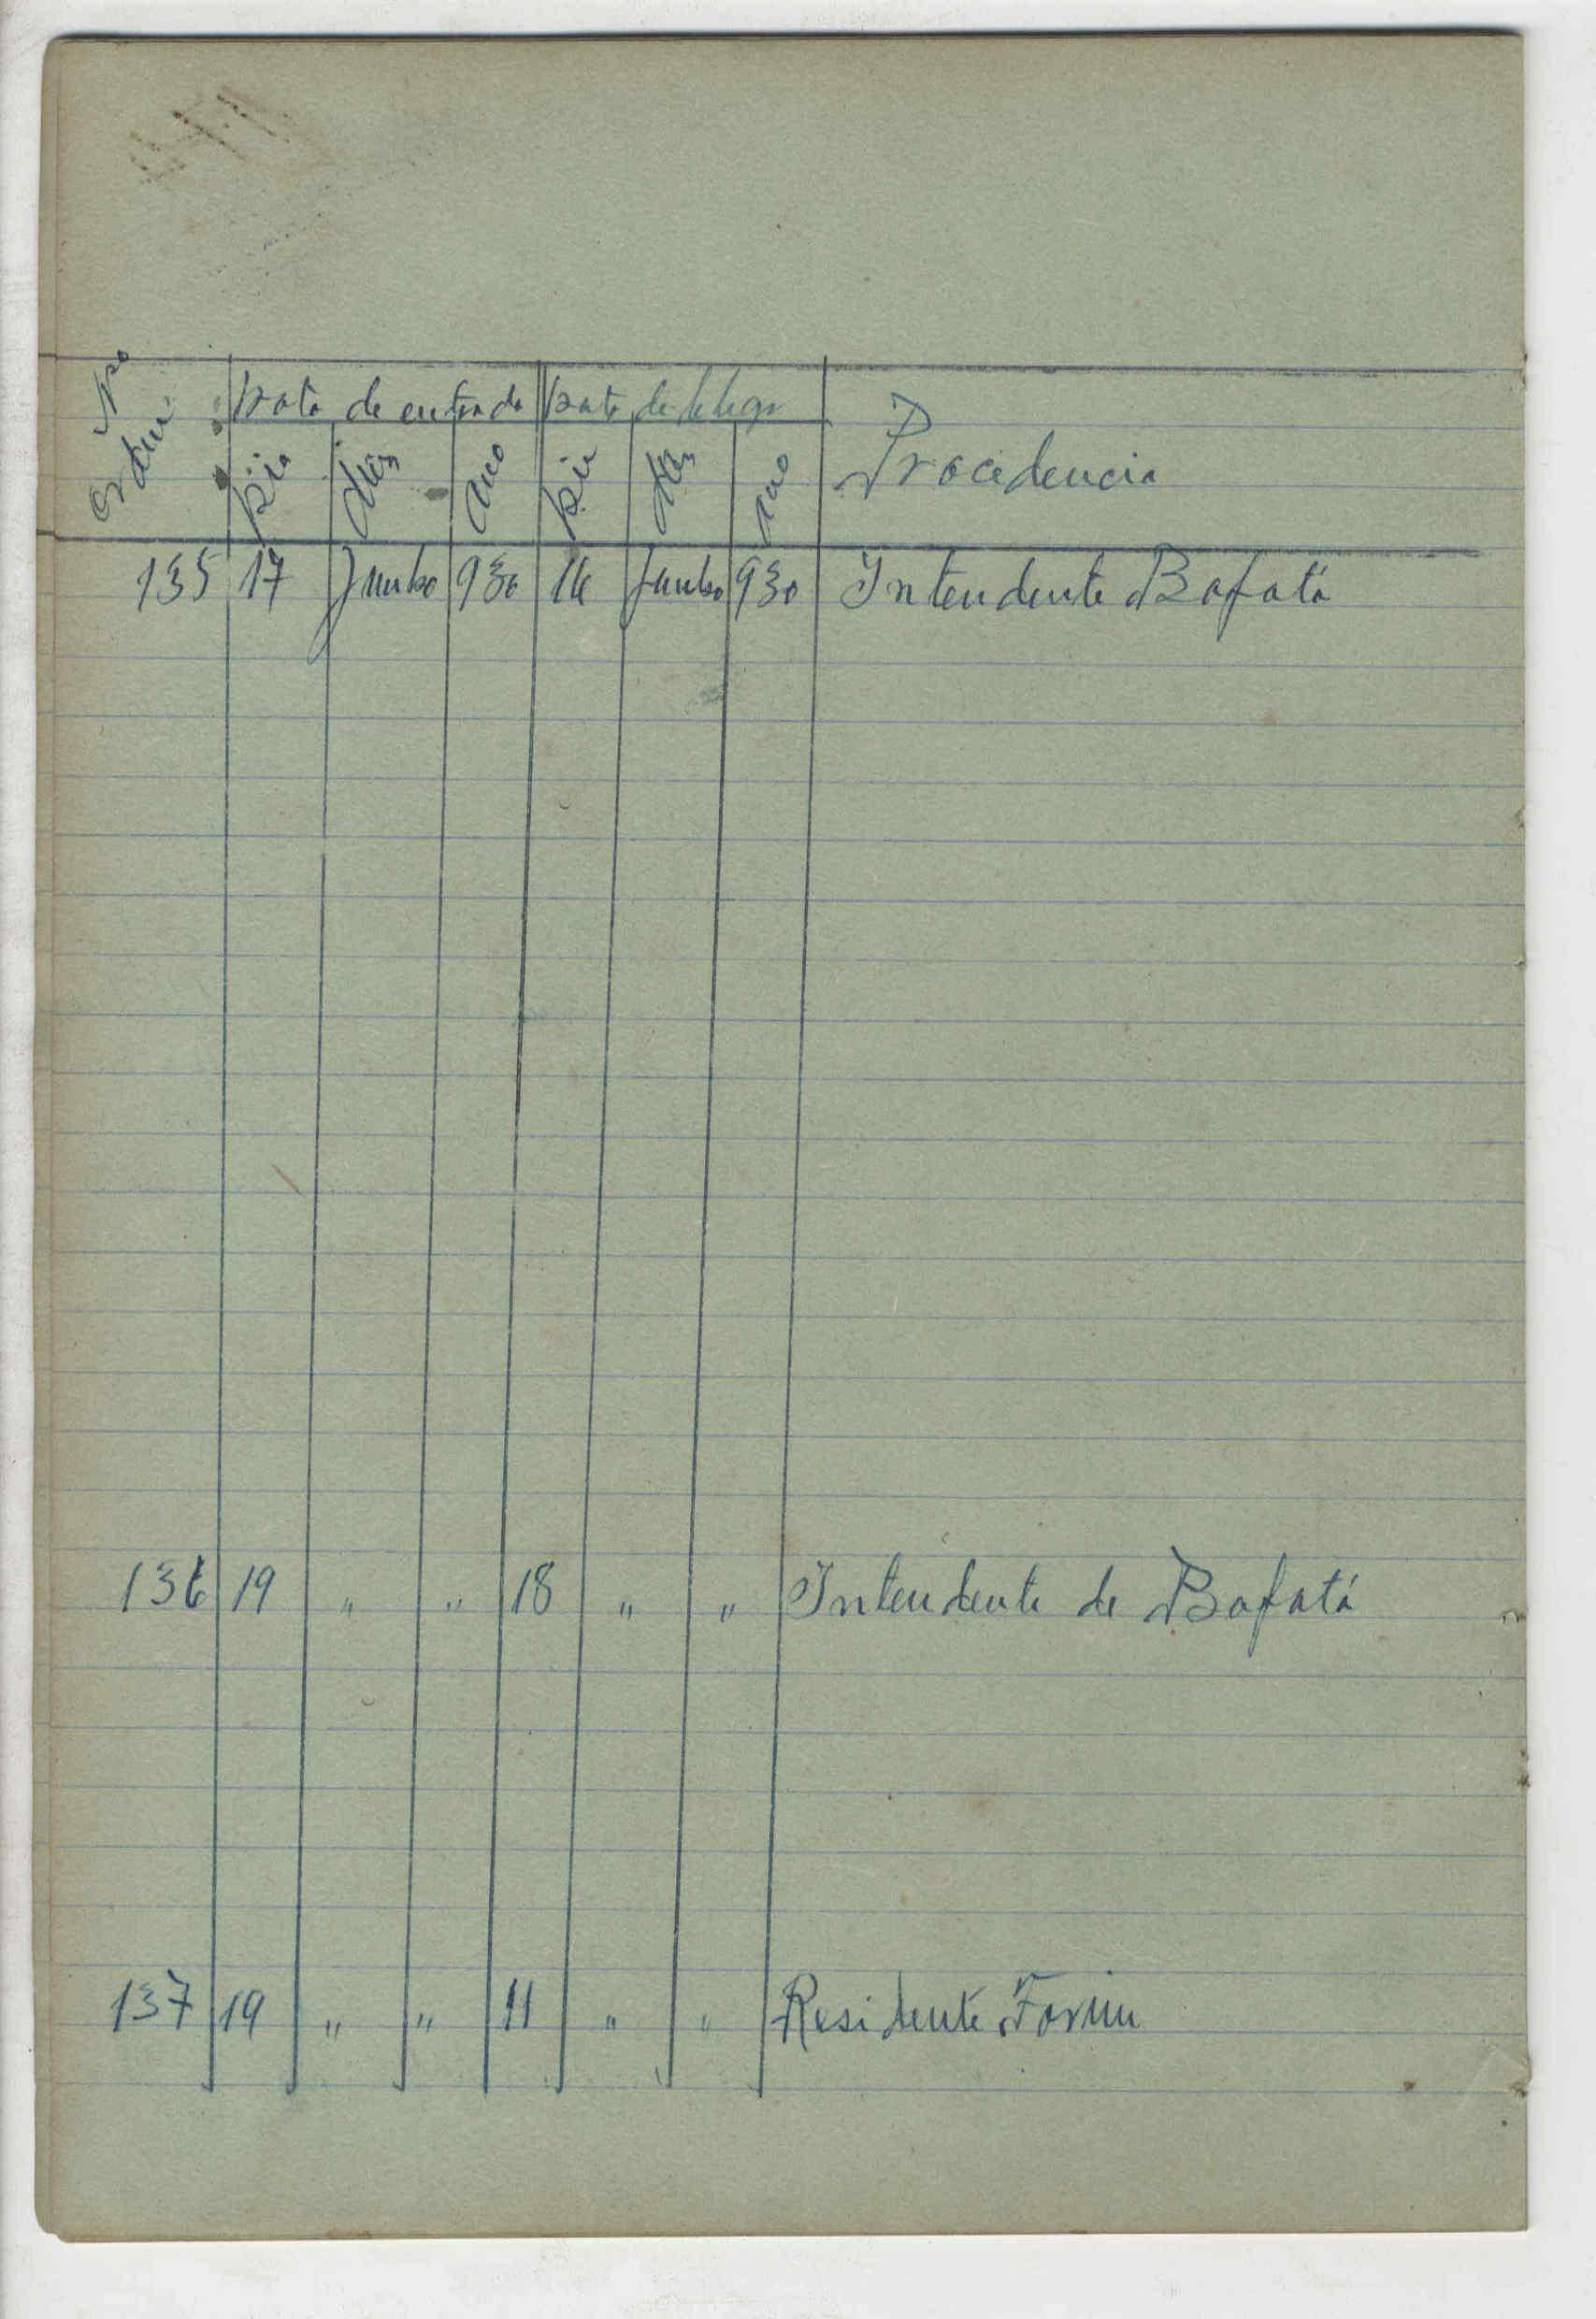 Nº Ordem Data de entrada Data do telegr Procedencia
Dia Mês Ano Dia Mês Ano
135 17 Junho 930 16 Junho 930 Intendente Bafatá
136 19 " " 18 " " Intendente de Bafatá
137 19 " " 11 " " Residente Farim